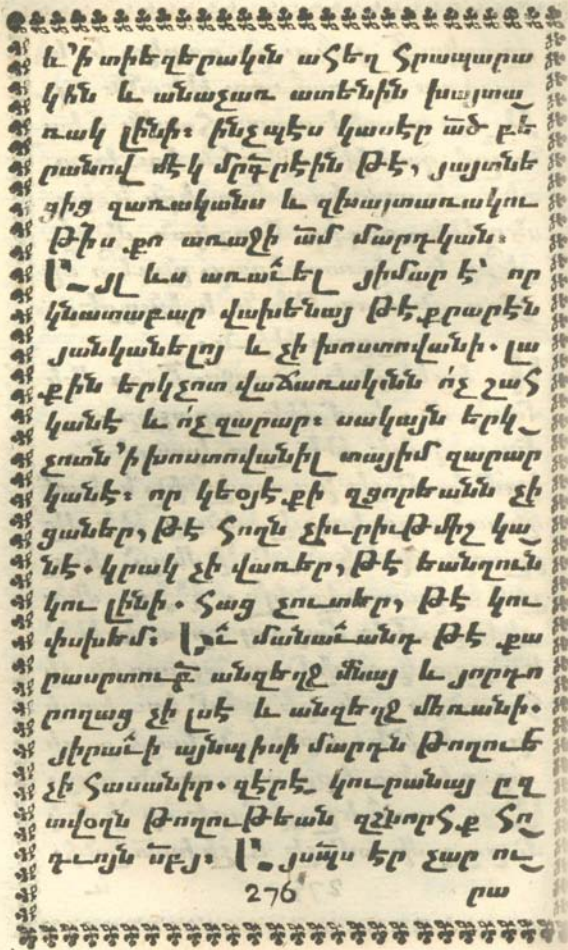 և ՚ի տիեզերական ահեղ հրապարա
կին և անաչառ ատենին խայտա֊
ռակ լինի։ ինչպէս կասէր ա՟ծ բե
րանով մէկ մրգ՟րէին թէ, յայտնե
ցից զառականս և զխայտառակու
թի՟ս քո առաջի ա՟մ մարդկան։
Այլ ևս առաւ՟ել յիմար է՝ որ
կնատաբար վախենայ թէ քրարէն
յանկանելոյ և չի խոստովանի. լա
քին երկչոտ վաճառականն ո՛չ շահ
կանէ և ո՛չ զարար։ սակայն երկ֊
չոտն ՚ի խոստովանիլ տայիմ զարար
կանէ։ որ կեօյէ քի զցորեանն չի
ցաներ, թէ հողն չիւրիւթմիշ կա֊
նէ. կրակ չի վառեր, թէ եանղուն
կու լինի. հաց չուտեր, թէ կու
փսխեմ։ Եւ՟ մանաւ՟անդ թէ քա
րասրտուբ՟ անզեղջ մնայ և յորդո
րողաց չի լսէ և անզեղջ մեռանի.
յիրաւ՟ի այնպիսի մարդն թողուե
չի հասանիր. զէրէ֊ կուրանայ ըզ
տվօղն թողութեան զշնորհք հո֊
գւոյն ս՟բյ։ Այսպ՟ս էր չար ու֊
276 րա